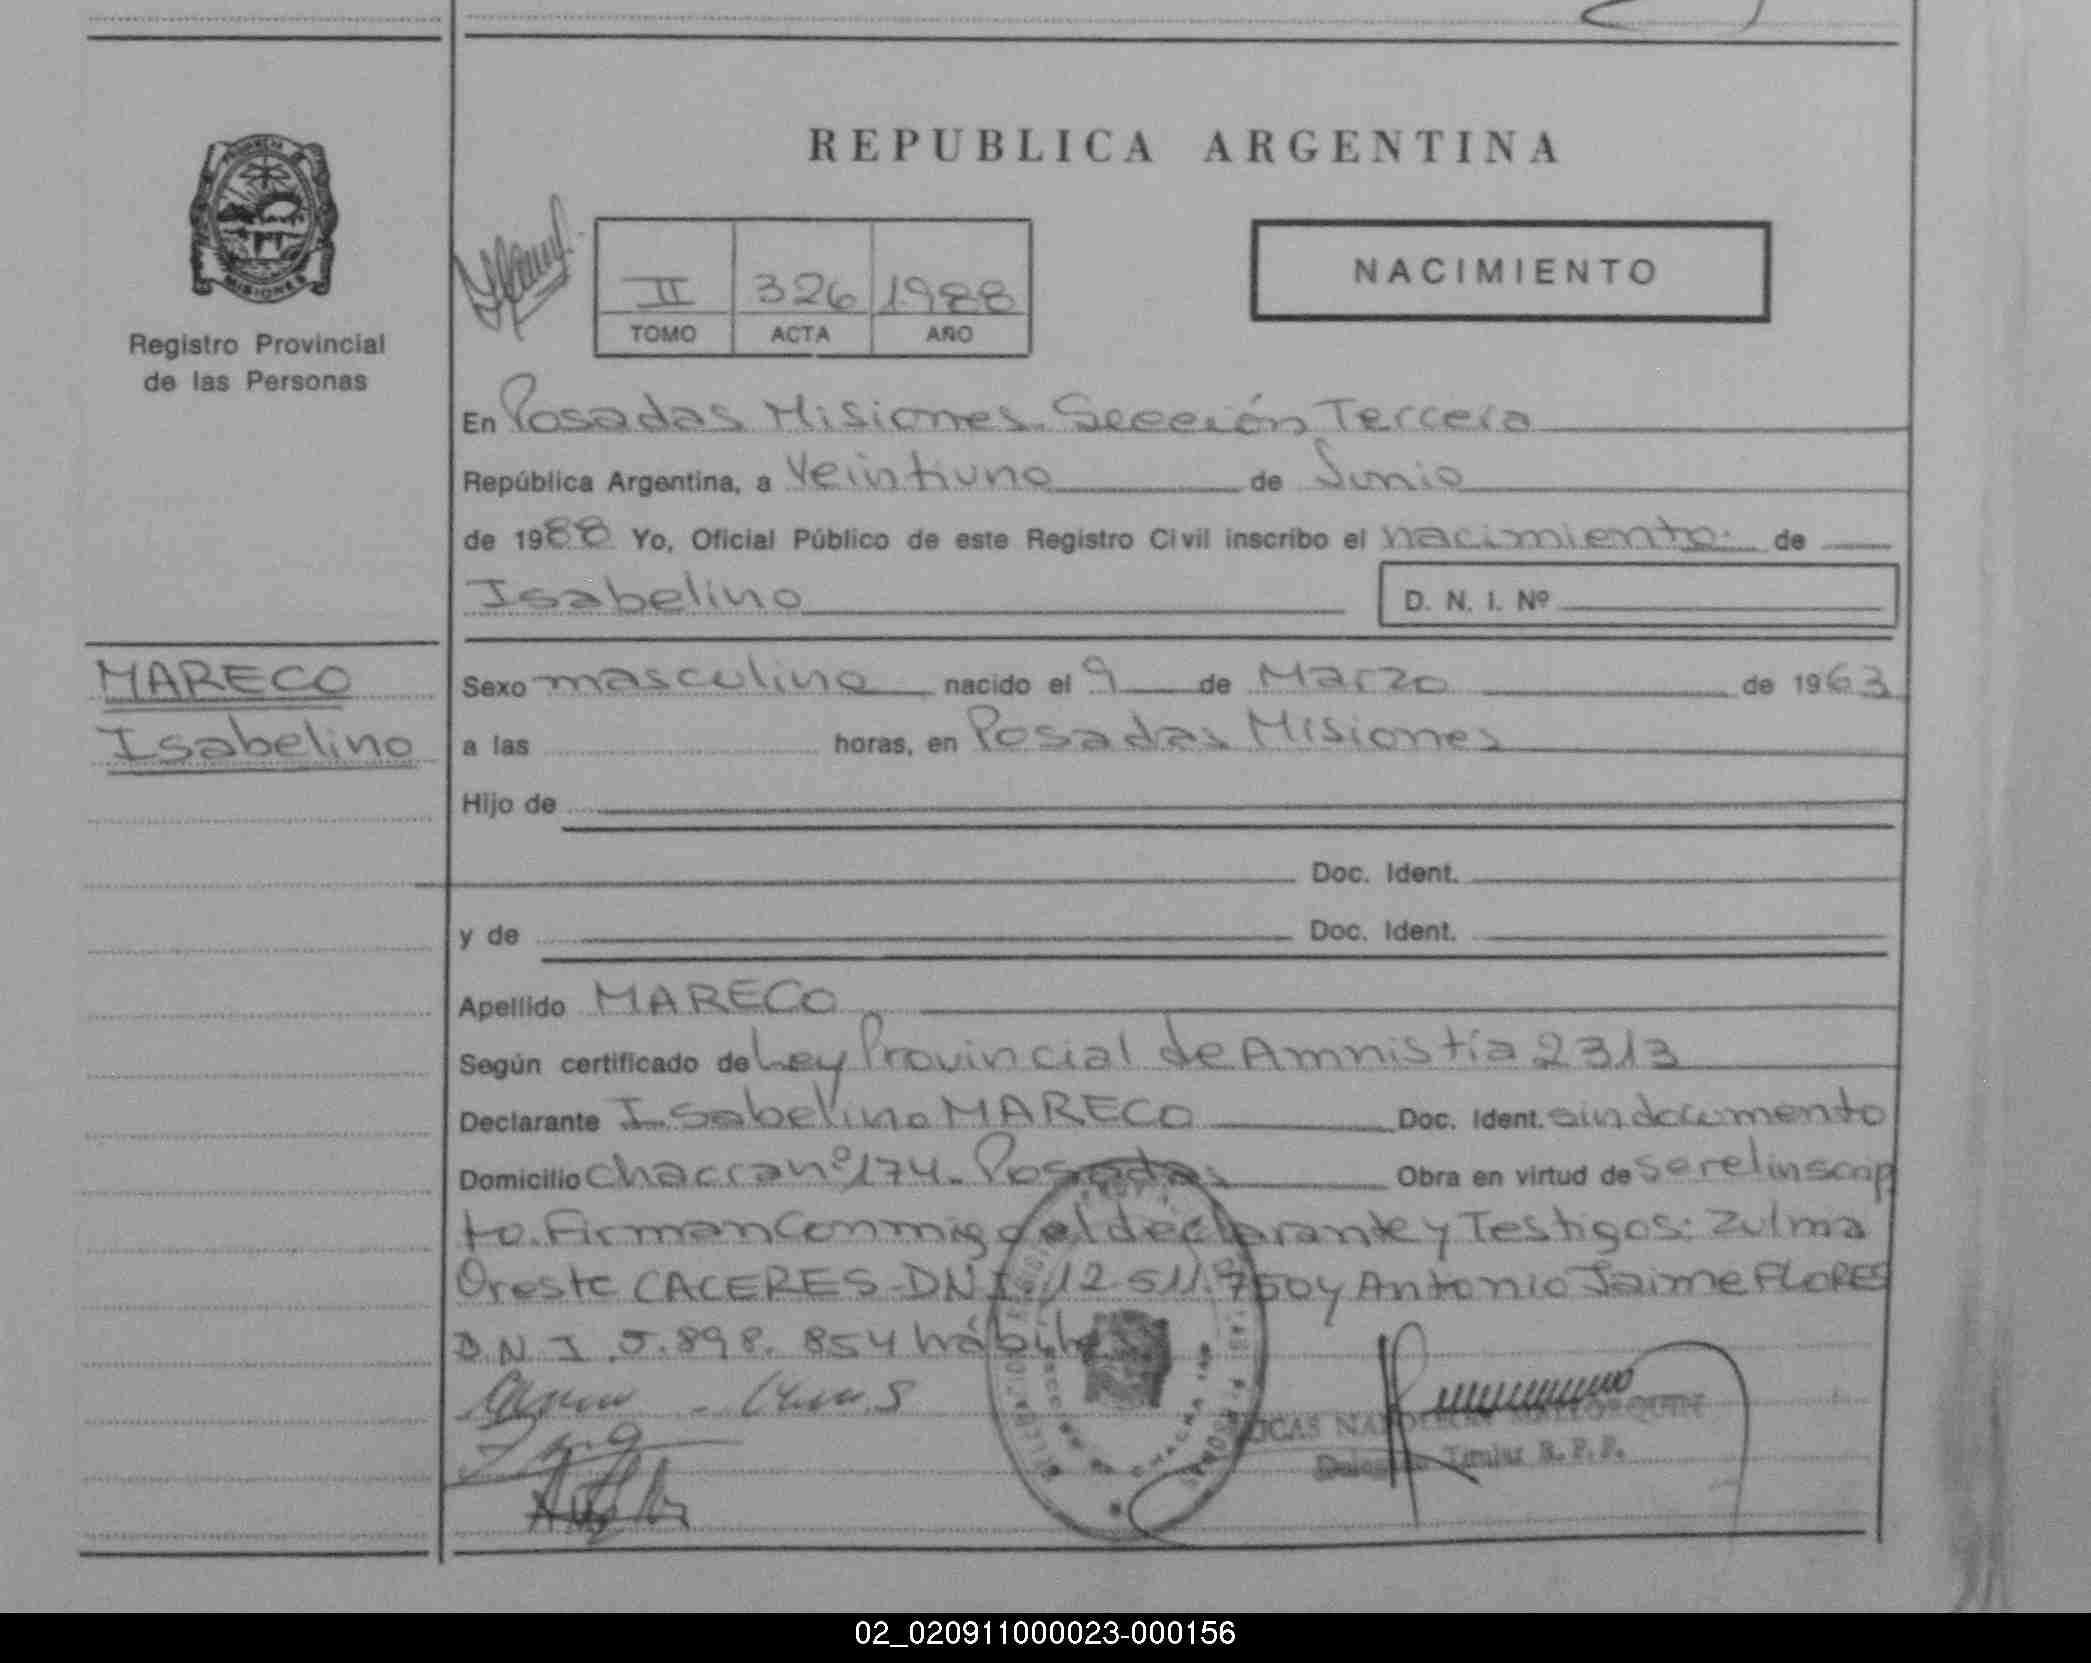 PROVINCIA DE
MISIONES
Registro Provincial
de las Personas
MARECO
Isabelino
REPUBLICA ARGENTINA
NACIMIENTO
II 326 1988
TOMO ACTA AÑO
En Posadas Misiones. Sección Tercera
República Argentina, a Veintiuno de Junio
de 1988 Yo, Oficial Público de este Registro Civil inscribo el nacimiento de
Isabelino D. N. I. Nº
Sexo masculino nacido el 9 de Marzo de 1963
a las horas, en Posadas Misiones
Hijo de
Doc. Ident.
y de Doc. Ident.
Apellido MARECO
Según certificado de Ley Provincial de Amnistía 2313
Declarante Isabelino MARECO Doc. Ident. sin documento
Domicilio chacra nº 174. Posadas Obra en virtud de ser el inscrip
to. Firman Conmigo el declarante y Testigos: Zulma
Oreste CACERES-DNI. 12.511.750 y Antonio Jaime FLORES
D.N.I 5.898.854 hábiles
Titular R.P.P.
02_020911000023-000156